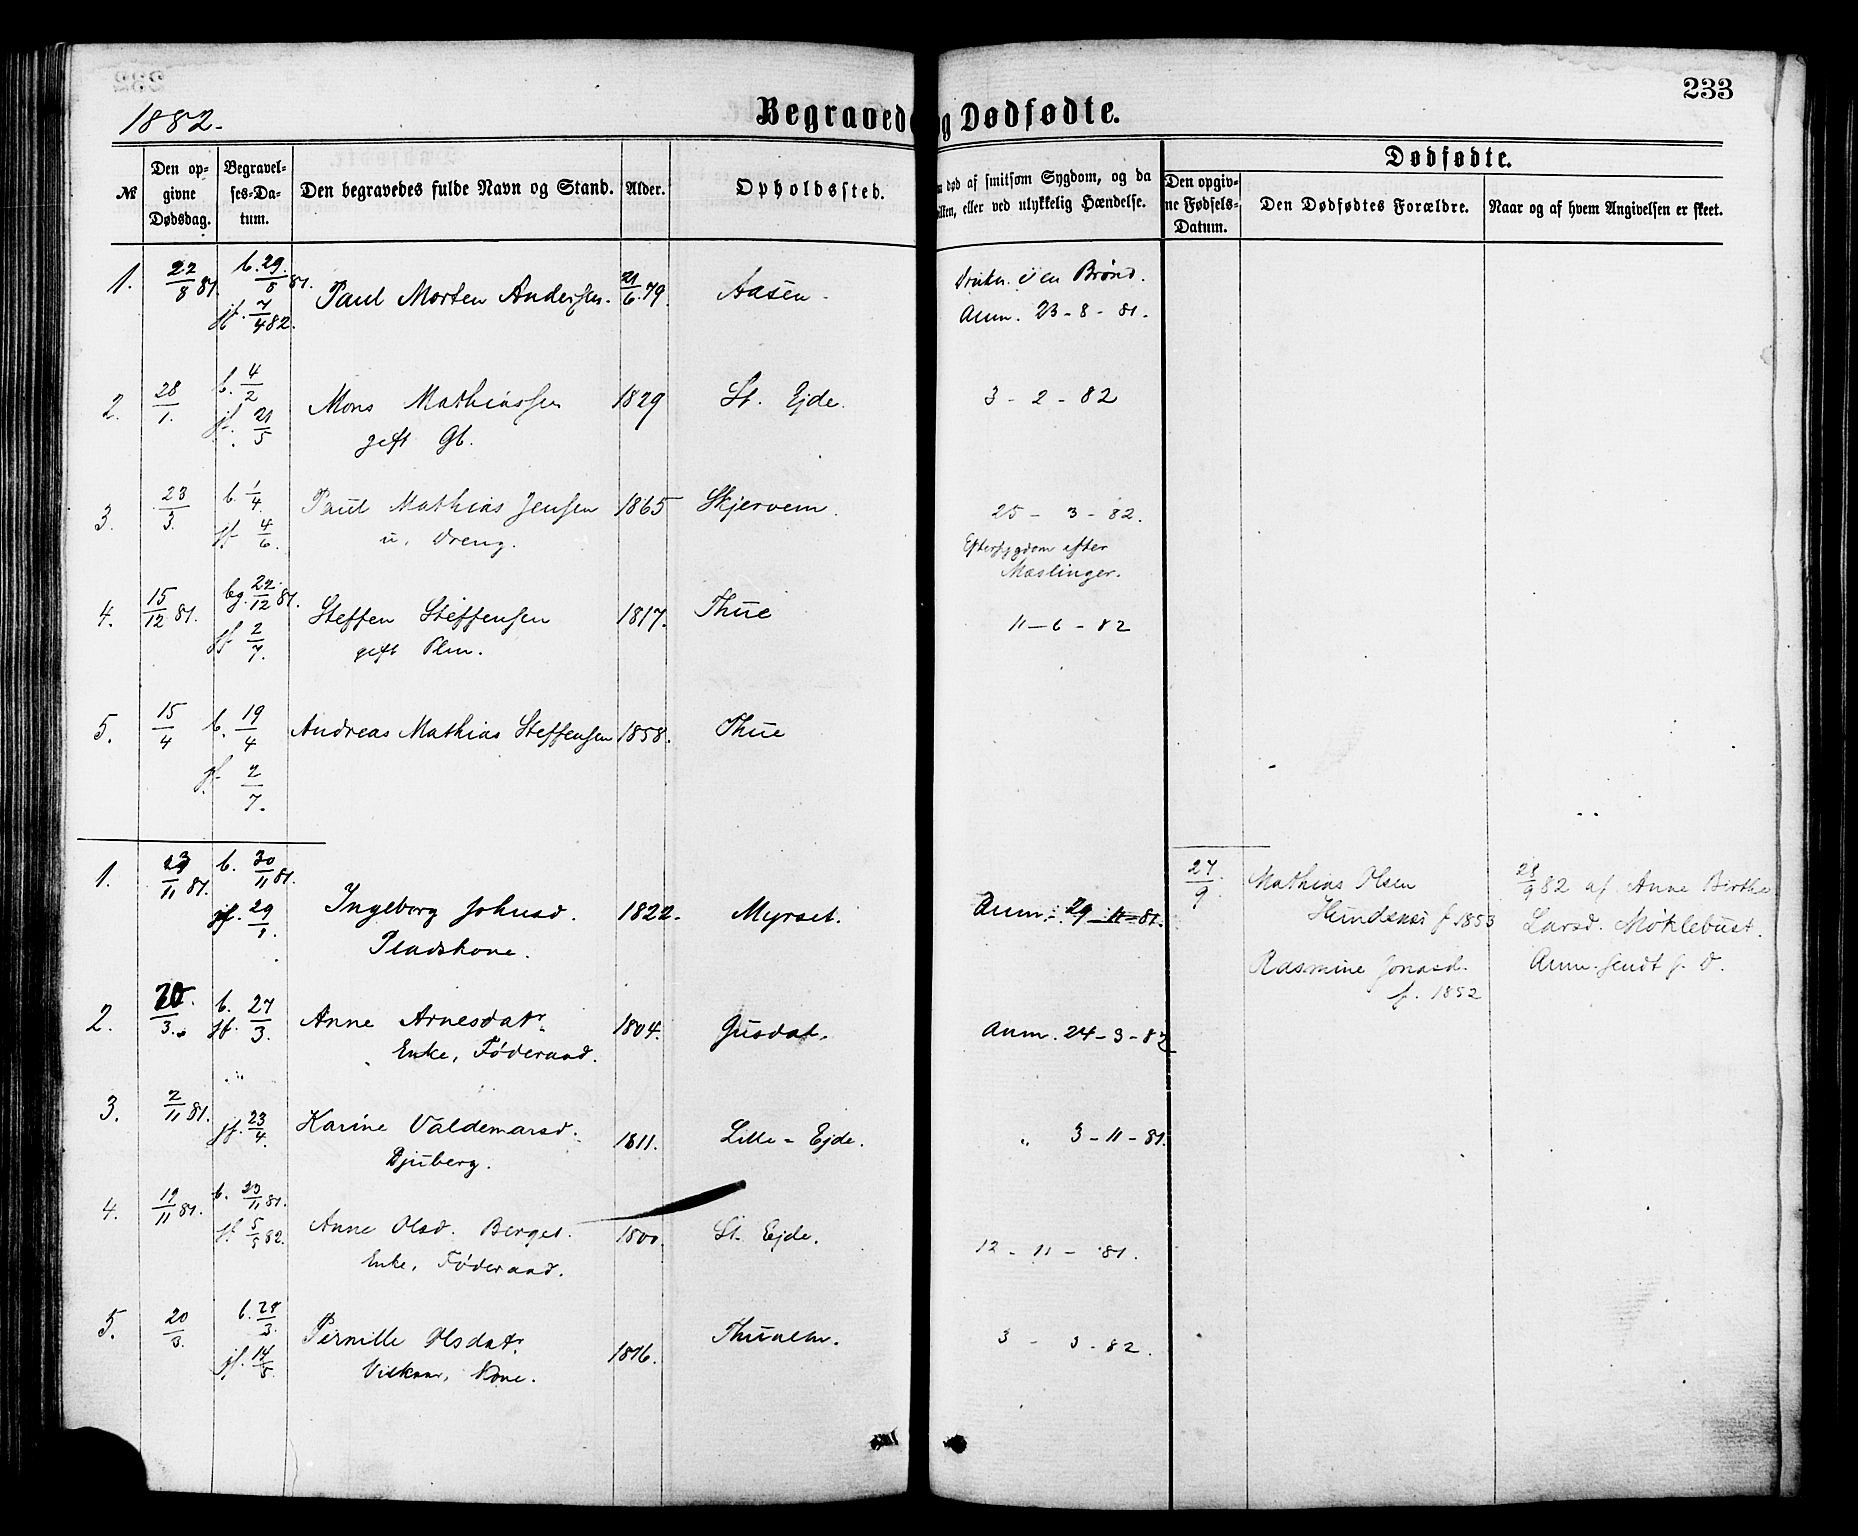 233
1882.
Begravede og Dødfødte.
Dødfødte.
№
Den opgivne Dødsdag.
Begravelses-Datum.
Den begravedes fulde Navn og Stand.
Alder.
Opholdssted.
død af smitsom Sygdom, og da
eller ved ulykkelig Hændelse.
Den opgivne Fødsels-Datum.
Den Dødfødtes Forældre.
Naar og af hvem Angivelsen er skeet.
1. 22/8 81. b. 29/8 81. Paul Morten Andersen. 21/6 79. Aasen. i en Brønd.
jf. 7/4 82. Anm. 23-8-81.
2. 28/1. b. 4/2 Mons Mathiassen 1829 St. Ejde. 3-2-82
jf. 21/5 gift Gb.
3. 23/3. b. 1/4. Paul Mathias Jensen 1865 Skjervem. 25-3-82.
jf. 4/6. u. Dreng. Eftersygdom efter
Mæslinger.
4. 15/12 81. bg. 22/12 81. Steffen Steffensen 1817. Thue 11-6-82
jf. 2/7. gift Plm.
5. 15/4 b. 19/4 Andreas Mathias Steffensen 1858. Thue
jf. 2/7.
1. 23/11 81. b. 30/11 81. Ingeborg Johnsd. 1822. Myrset. Anm. 29-11-81.
jf. 29/1. Pladskone.
27/9. Mathias Olsen
Hundsnes f. 1853
Rasmine Jonasd.
f. 1852
28/9 82 af Anne Birthe
Larsd. Møklebust.
Anm. sendt s. D.
2. 20/3. b. jf. 27/3. Anne Arnesdatr. 1804. Gusdal. Anm. 24-3-82
Enke, Føderaad.
3. 2/11 81. jf. 23/4. Karine Valdemarsd. 1811. Lille-Ejde. " 3-11-81.
Djuberg.
4. 19/11 81. b. 23/11 81. Anne Olsd. Berget. 1800. St. Ejde. 12-11-81.
jf. 5/5 82. Enke, Føderaad.
5. 20/3. b. 28/3. Pernille Olsdatr. 1816. Thunem. 3-3-82.
jf. 14/5. Vilkaar, Kone.